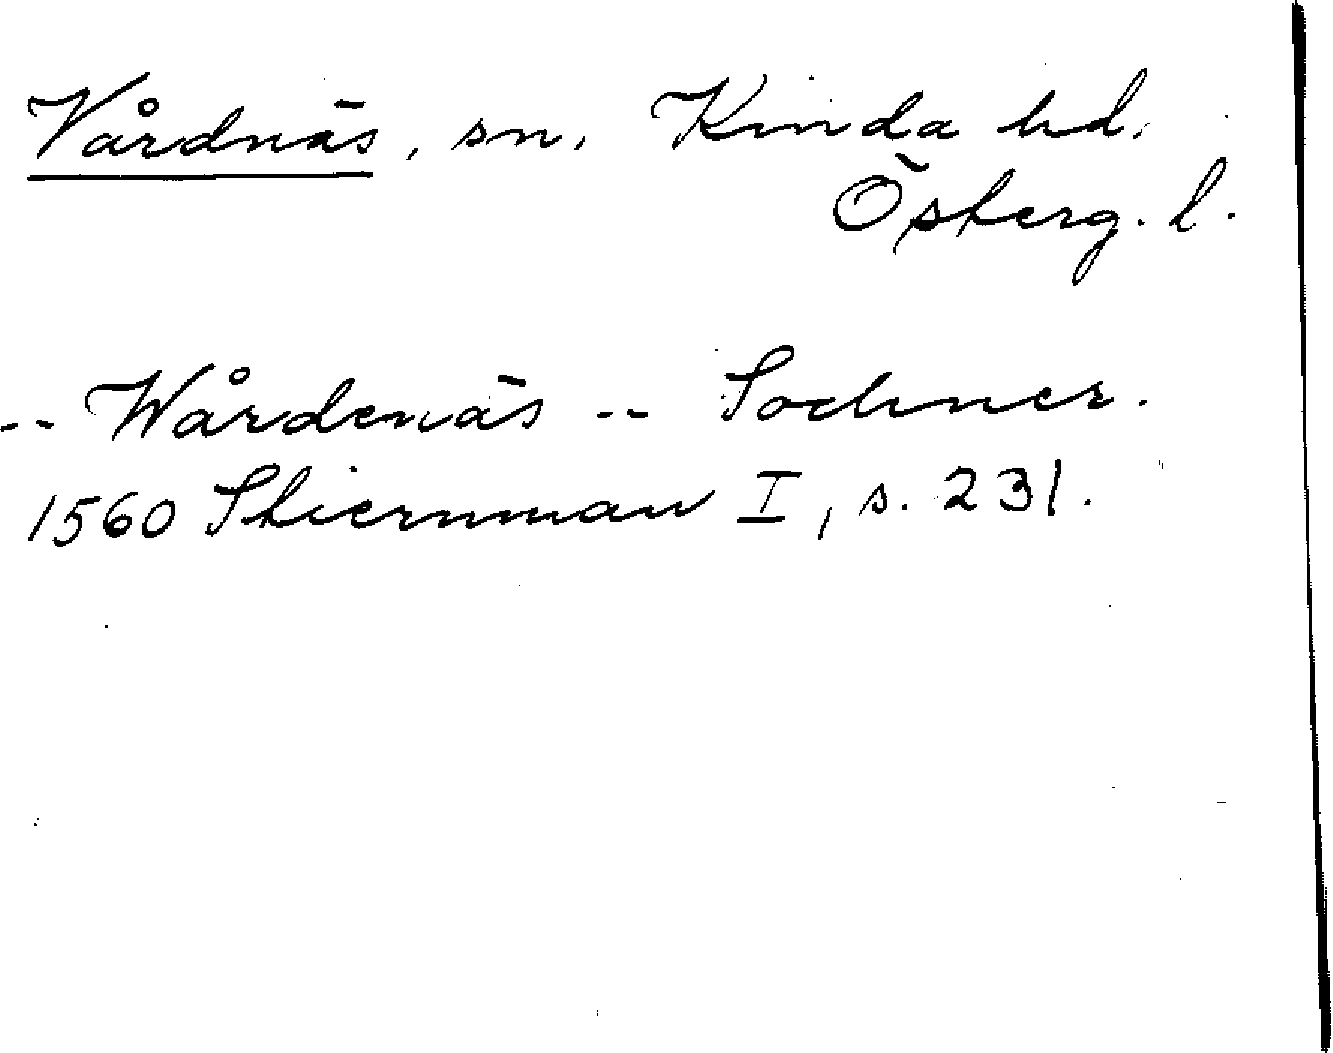 Vårdnäs, sn. Kinda hd.
Österg. l.
-- Wårdenäs -- Sochner.
1560 Stiernman I, s. 231.